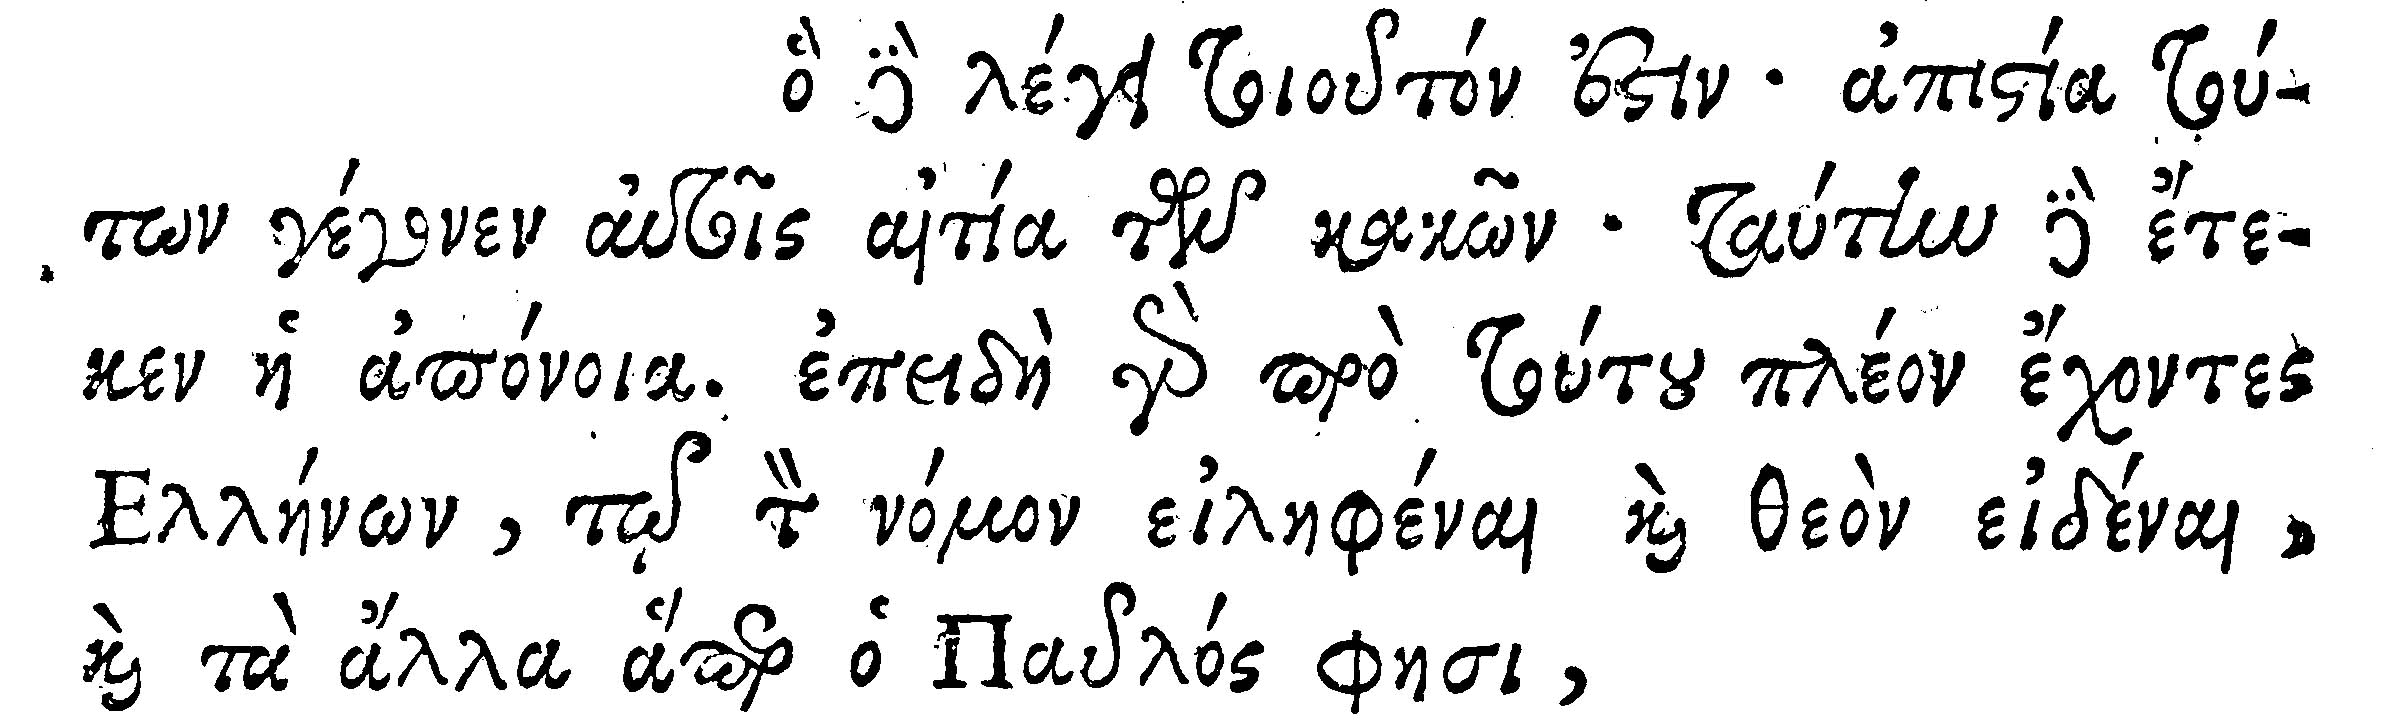 ὃ δὲ λέγει τοιοῦτόν ἐστιν· ἀπιστία τού-
των γέγονεν αὐτοῖς αἰτία τῶν κακῶν· ταύτην δὲ ἔτε-
κεν ἡ ἀπόνοια. ἐπειδὴ γὰρ πρὸ τούτου πλέον ἔχοντες
Ελλήνων, τῷ τὸν νόμον εἰληφέναι καὶ θεὸν εἰδέναι,
καὶ τὰ ἄλλα ἅπερ ὁ Παυλός φησι,